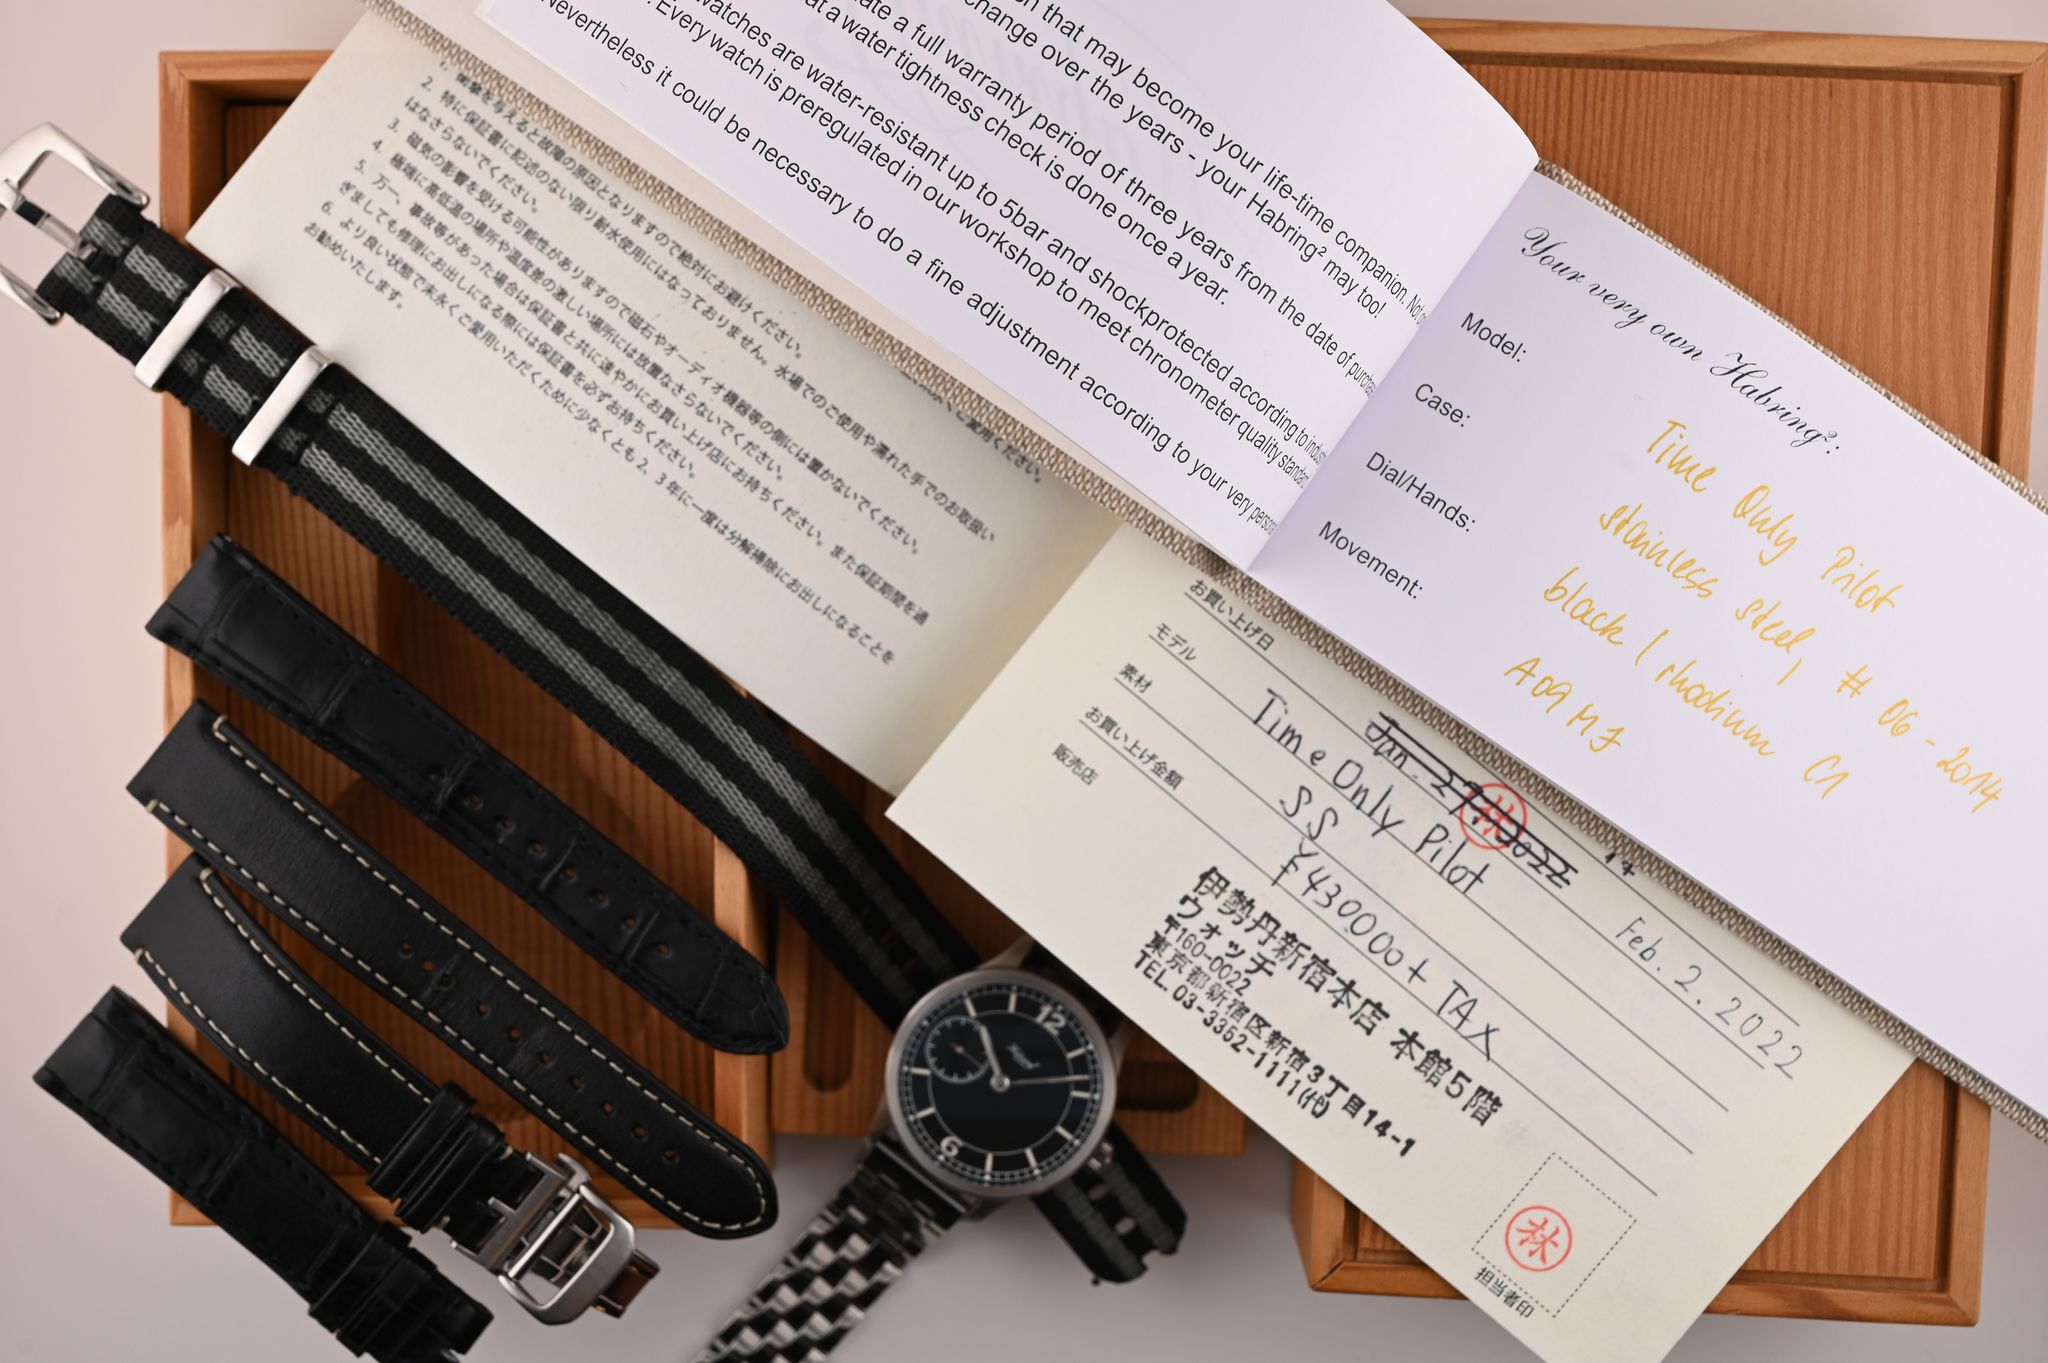 n that may become your life-time companion. Not
change over the years - your Habring² may too!
ate a full warranty period of three years from the date of purchas
at a water tightness check is done once a year.
watches are water-resistant up to 5bar and shockprotected according to indus
. Every watch is preregulated in our workshop to meet chronometer quality standard
Nevertheless it could be necessary to do a fine adjustment according to your very persona
Your very own Habring²:
Model: Time Only Pilot
Case: stainless steel, # 06-2014
Dial/Hands: black / rhodium C1
Movement: A09MJ
1. 衝撃を与えると故障の原因となりますので絶対にお避けください。
2. 特に保証書に記述のない限り耐水使用にはなっておりません。水場でのご使用や濡れた手でのお取扱い
はなさらないでください。
3. 磁気の影響を受ける可能性がありますので磁石やオーディオ機器等の側には置かないでください。
4. 極端に高低温の場所や温度差の激しい場所には放置なさらないでください。
5. 万一、事故等があった場合は保証書と共に速やかにお買い上げ店にお持ちください。また保証期間を過
ぎましても修理にお出しになる際には保証書を必ずお持ちください。
6. より良い状態で末永くご愛用いただくために少なくとも2、3年に一度は分解掃除にお出しになることを
お勧めいたします。
お買い上げ日 Feb. 2. 2022
林
モデル Time Only Pilot
素材 SS
お買い上げ金額 ¥430000+TAX
販売店
伊勢丹新宿本店 本館5階
ウォッチ
〒160-0022
東京都新宿区新宿3丁目14-1
TEL. 03-3352-1111(代)
林
担当者印
12
6
Habring²